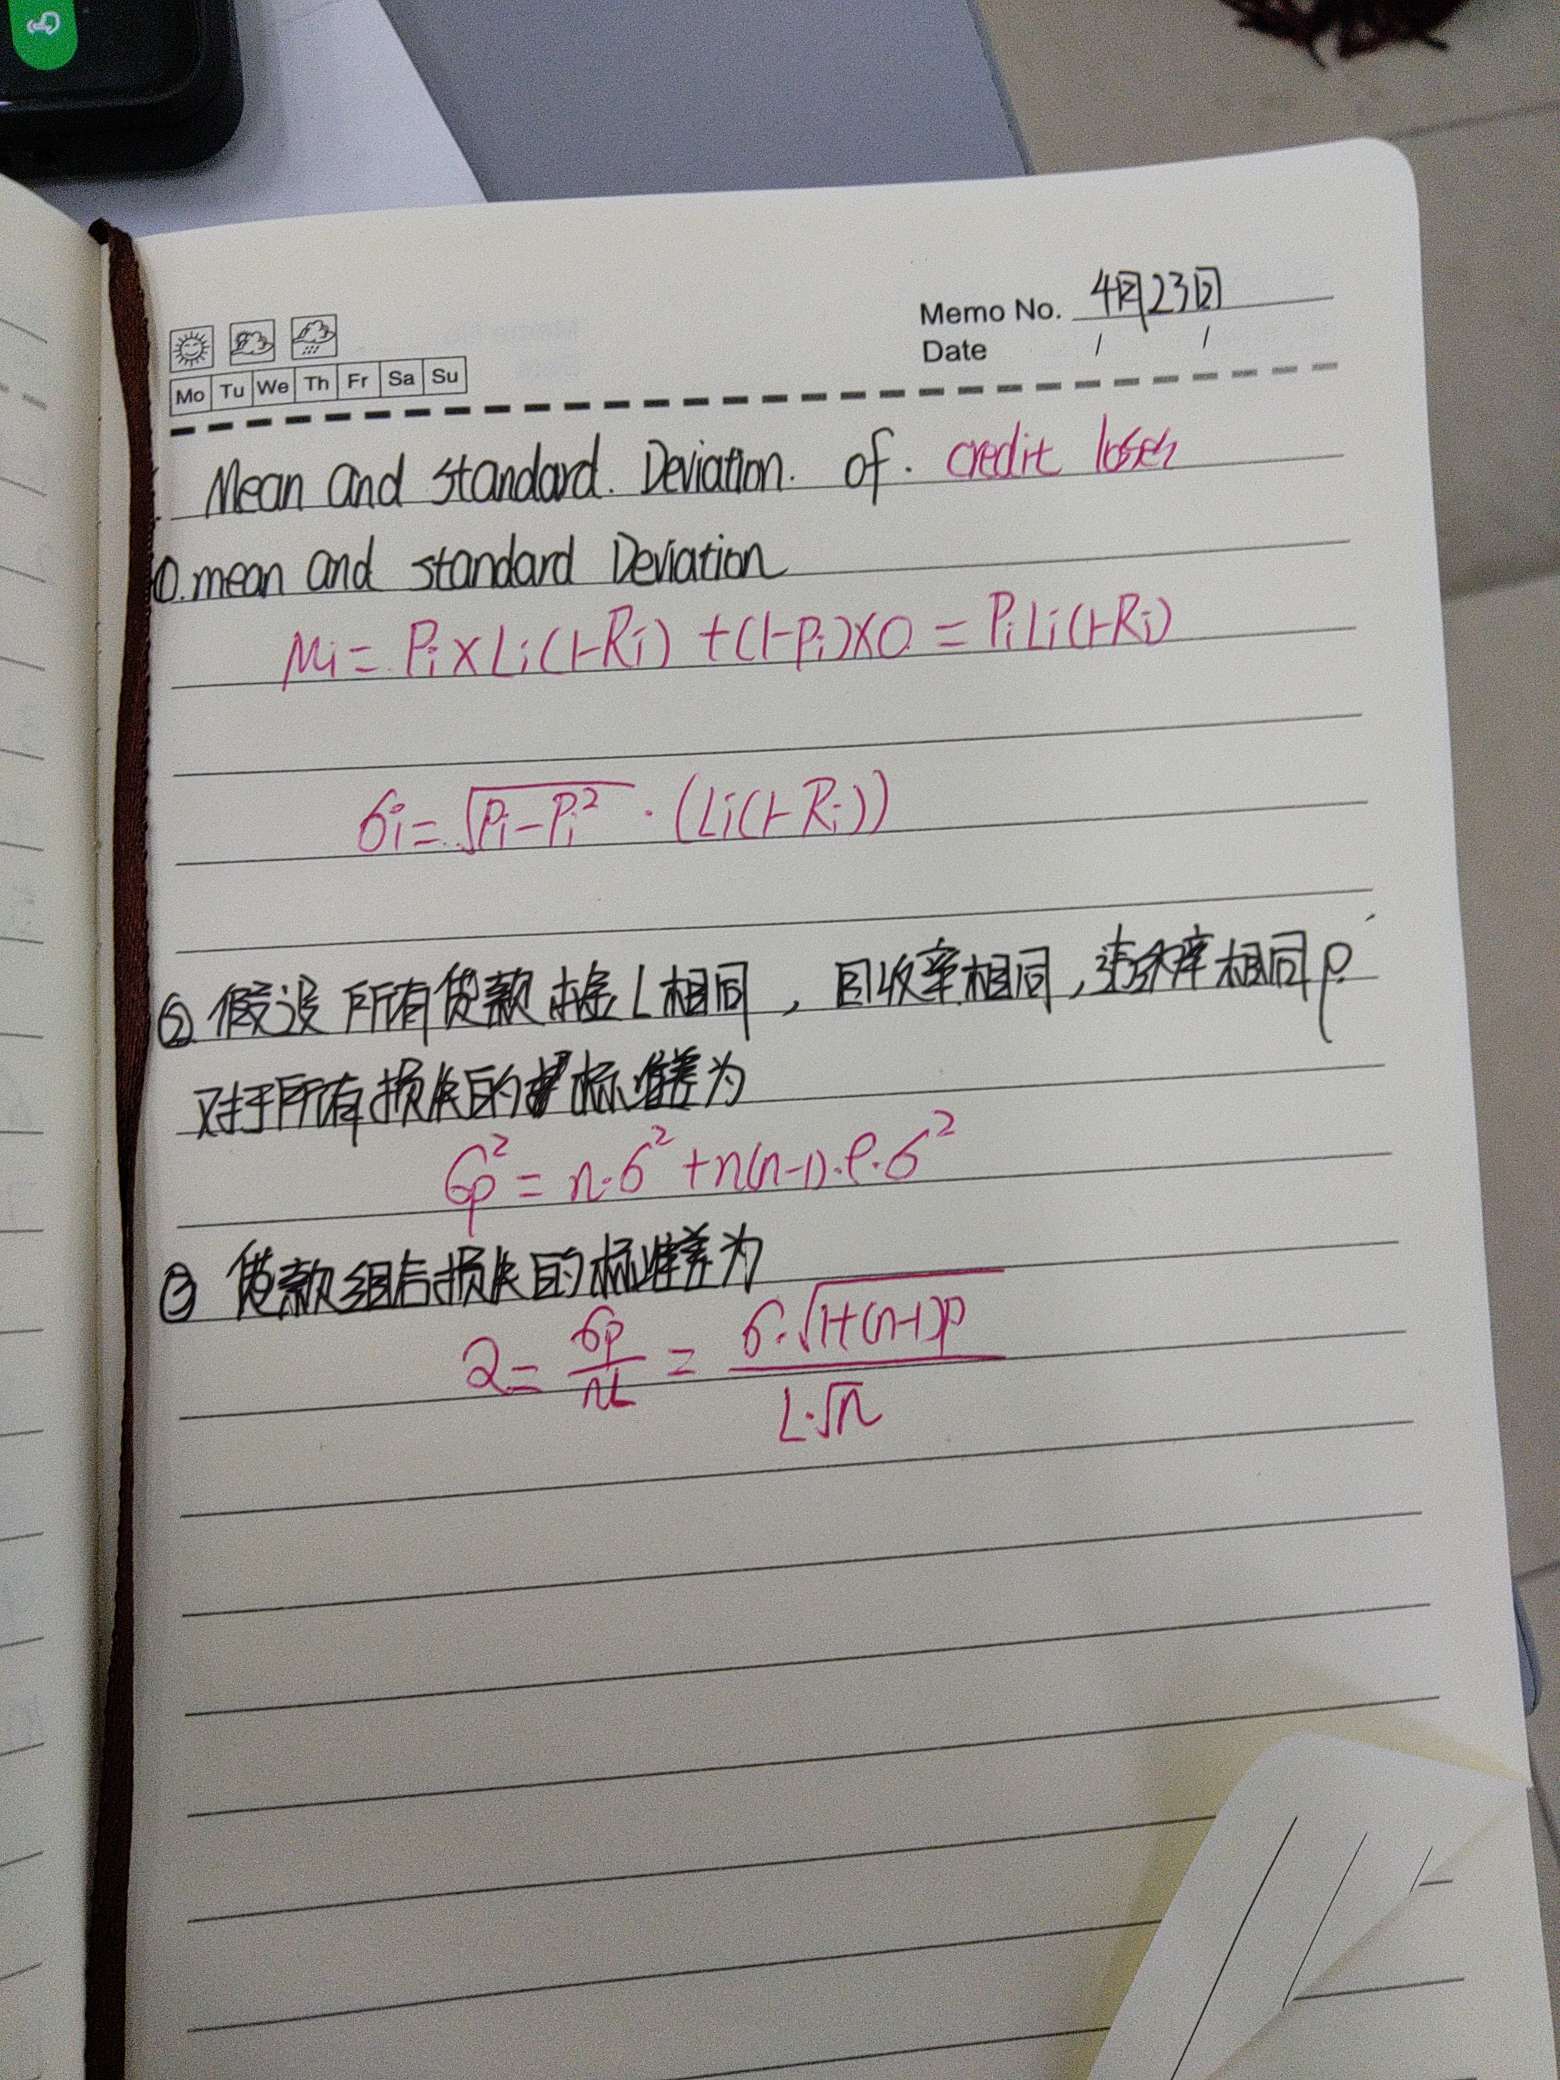 Memo No. 4月23日
Date / /
Mo Tu We Th Fr Sa Su
Mean and standard. Deviation. of. credit losses
①.mean and standard Deviation
μi = Pi×Li(1-Ri) +(1-Pi)×0 = PiLi(1-Ri)
σi = √(Pi-Pi²) · (Li(1-Ri))
② 假设所有贷款本金L相同，回收率相同，违约率相同P.
对于所有损失的标准差为
σp² = n·σ² + n(n-1)·ρ·σ²
③ 贷款组合损失的标准差为
α = σp/nL = σ·√1+(n-1)ρ / L·√n